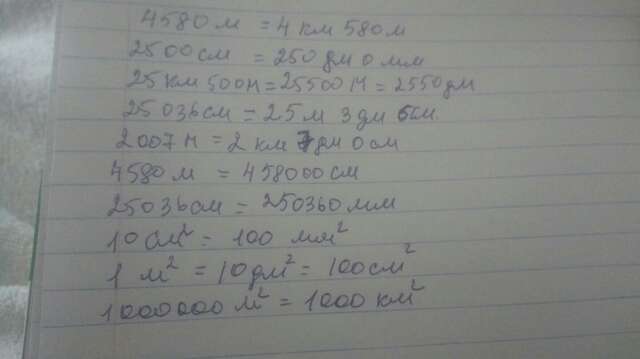 4580 м = 4 км 580 м
2500 см = 250 дм 0 мм
25 км 500 м = 25500 м = 2550 дм
25036 см = 25 м 3 дм 6 см
2007 м = 2 км 7 дм 0 см
4580 м = 458000 см
25036 см = 250360 мм
10 см² = 100 мм²
1 м² = 10 дм² = 100 см²
1000000 м² = 1000 км²